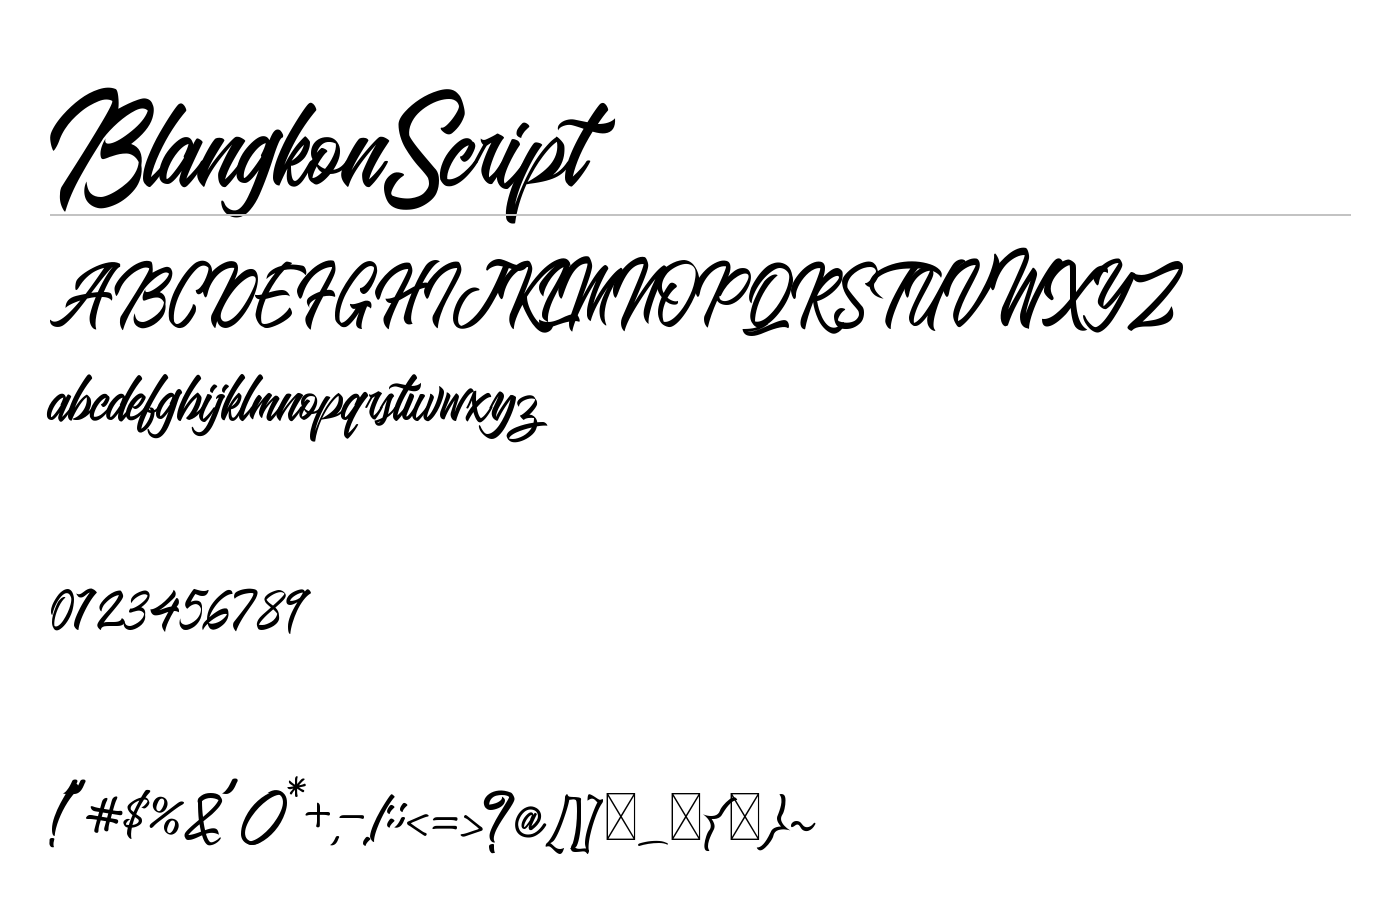 BlangkonScript
ABCDEFGHIJKLMNOPQRSTUVWXYZ
abcdefghijklmnopqrstuvwxyz
0123456789
!"#$%&'()*+,-./:;<=>?@[\]_{}~